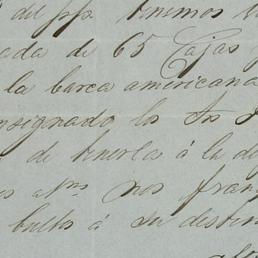 del ppº tenemos
ada de 65 Cajas
la barca americana
nsignado los
de tenerla á la
nos
bultos á su destin